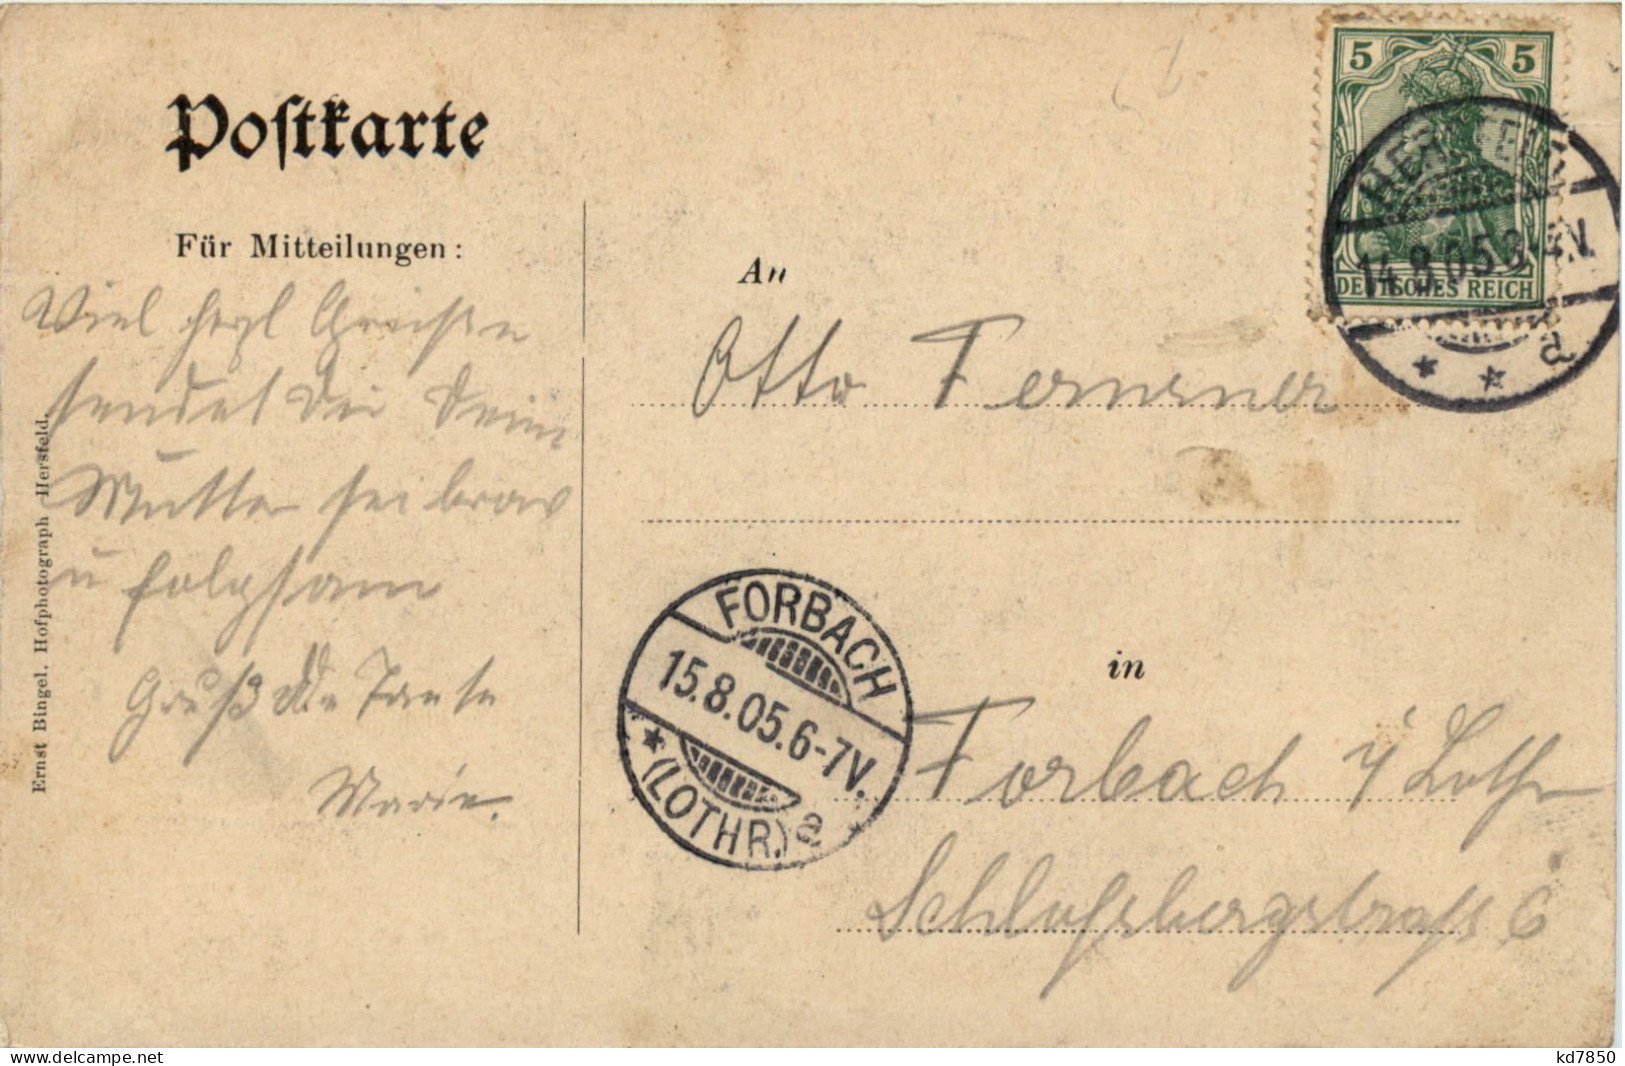 Postkarte
Für Mitteilungen:
Viel herzl Grüße
sendet Dir Deine
Mutter sei brav
u folgsam
Gruß Tante
Marie.
Ernst Bingel. Hofphotograph Hersfeld.
An
Otto
in
Forbach i/ Lothr
Schloßbergstraße 6
5 5
DEUTSCHES REICH
HERSFELD
14.8.05.3-4V.
* * a
FORBACH
15.8.05.6-7V.
* (LOTHR.) a
www.delcampe.net
kd7850